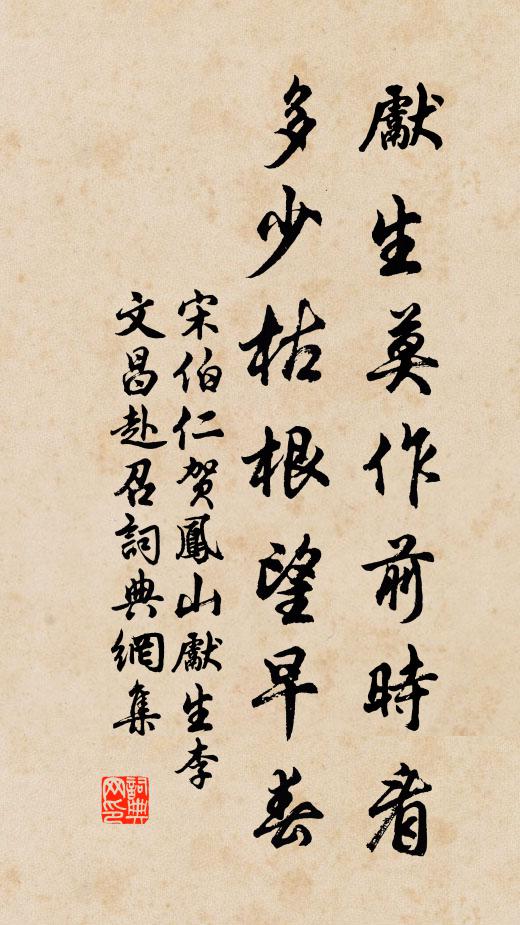 獻生莫作前時看
多少枯根望早春
宋伯仁賀鳳山獻生李
文昌赴召詞典網集
詞典网印